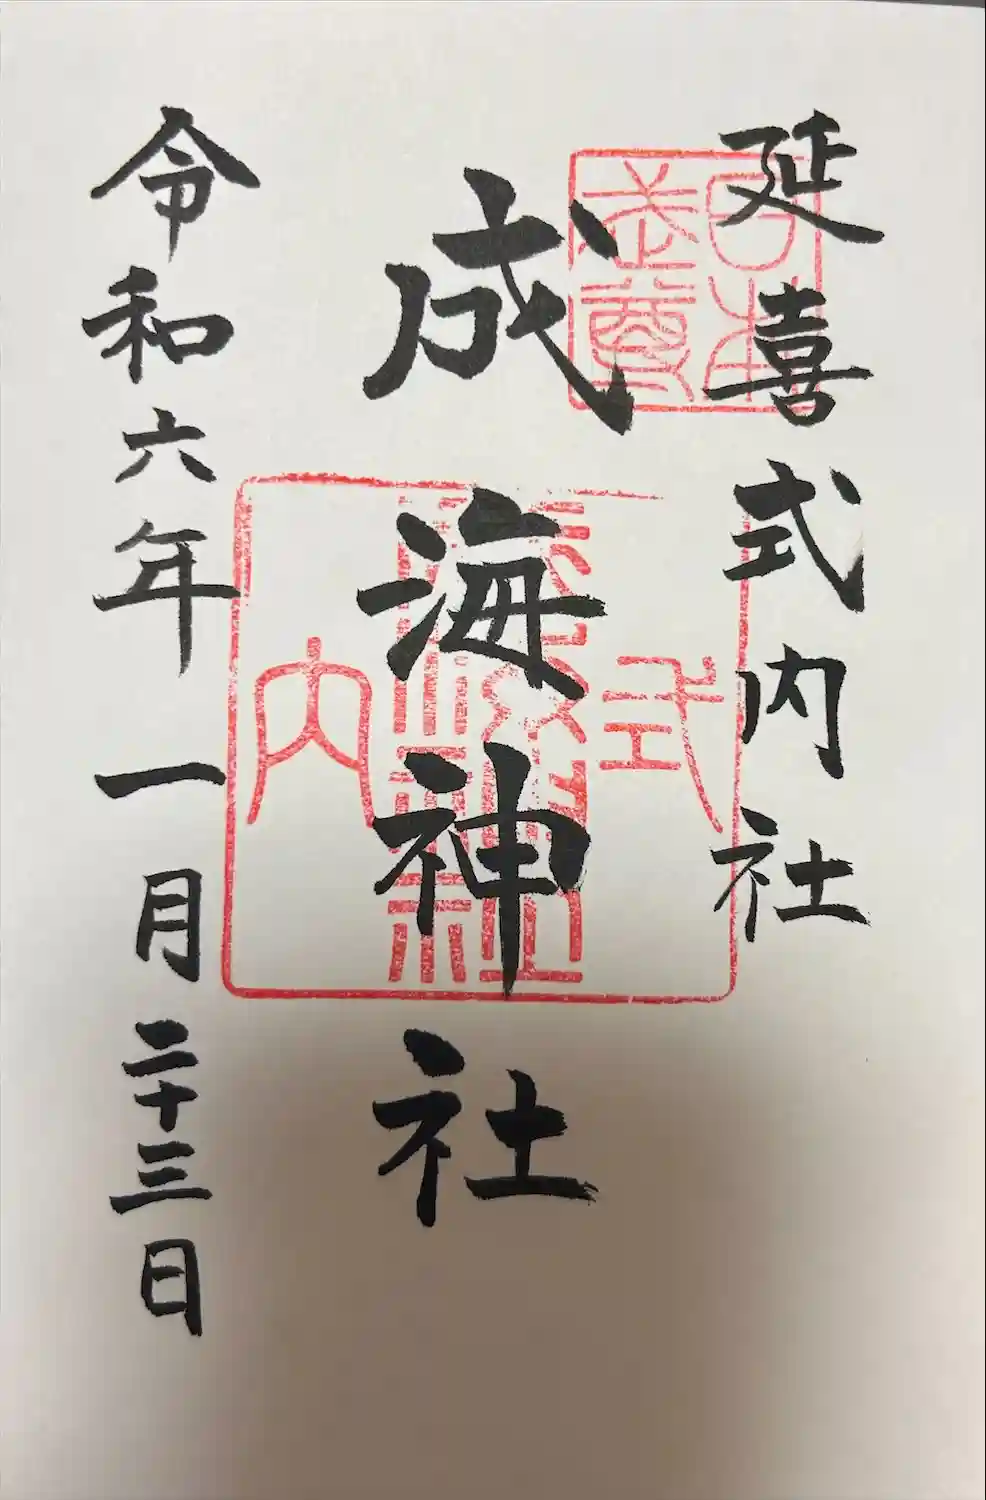 延喜式内社
成海神社
令和六年一月二十三日
日本武尊
式
内